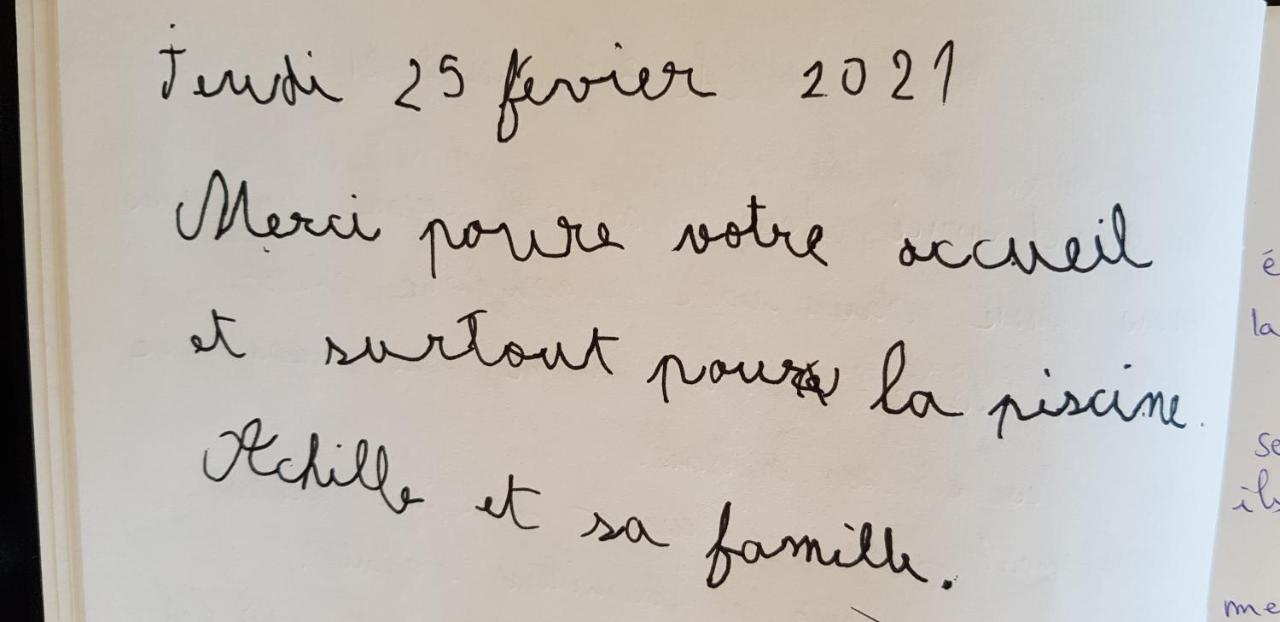 Jeudi 25 février 2021
Merci poure votre accueil
et surtout pour la piscine.
Achille et sa famille.
é
la
se
ils
me